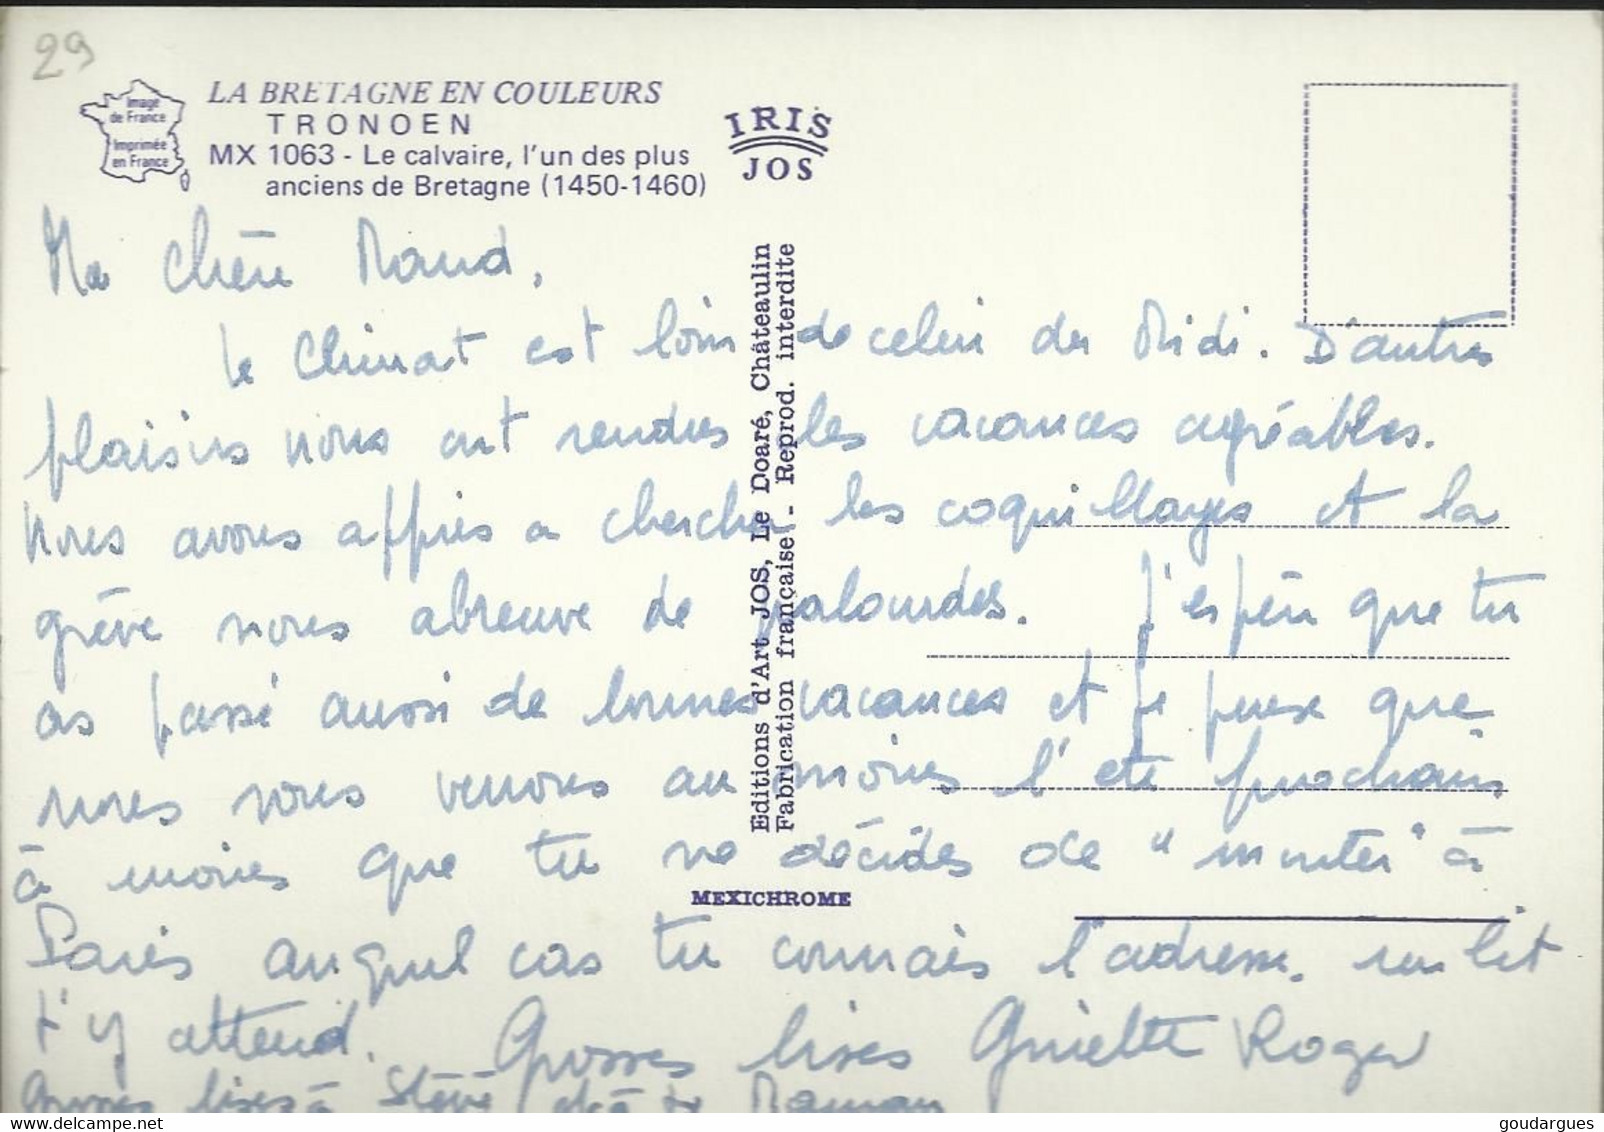 29
Image
de France
Imprimée
en France
LA BRETAGNE EN COULEURS
TRONOEN
MX 1063 - Le calvaire, l'un des plus
anciens de Bretagne (1450-1460)
IRIS
JOS
Editions d'Art JOS, Le Doaré, Châteaulin
Fabrication française - Reprod. interdite
MEXICHROME
Ma chère Maud,
Le climat est loin de celui du Midi. D'autres
plaisirs nous ont rendus les vacances agréables.
Nous avons appris a chercher les coquillages et la
grève nous abreuve de palourdes. J'espère que tu
as passé aussi de bonnes vacances et je pense que
nous nous verrons au moins l'été prochain
à moins que tu ne décides de "monter" à
Paris auquel cas tu connais l'adresse. un lit
t'y attend. Grosses bises Roger
Grosses bises à et à ta Maman
goudargues